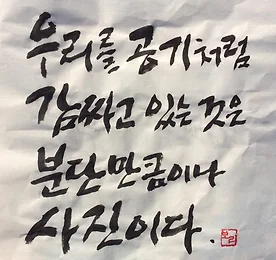 우리를 공기처럼
감싸고 있는 것은
분단만큼이나
사진이다.